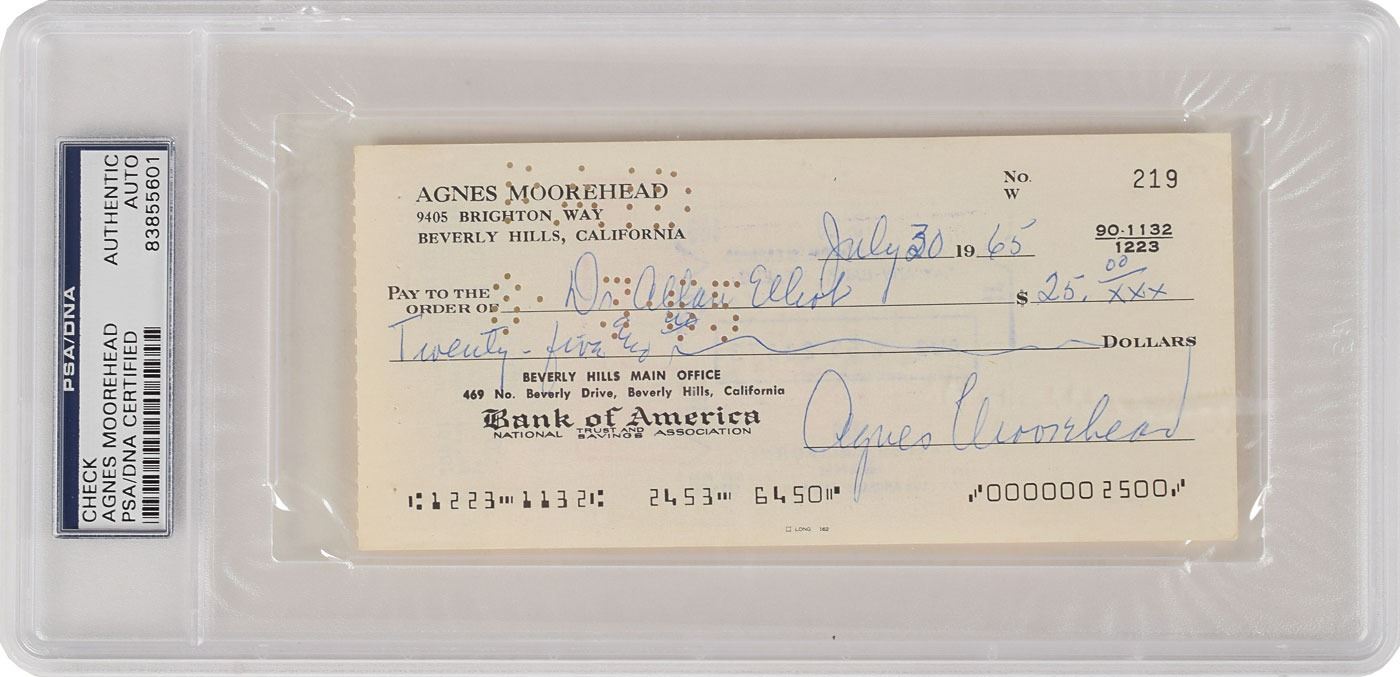 PSA/DNA
CHECK
AGNES MOOREHEAD
PSA/DNA CERTIFIED
AUTHENTIC
AUTO
83855601
AGNES MOOREHEAD
9405 BRIGHTON WAY
BEVERLY HILLS, CALIFORNIA
No. 219
W
90-1132
1223
July 30 1965
PAY TO THE
ORDER OF Dr Allan Elliot $ 25. 00/xxx
Twenty-five DOLLARS
BEVERLY HILLS MAIN OFFICE
469 No. Beverly Drive, Beverly Hills, California
Bank of America
NATIONAL TRUST AND SAVINGS ASSOCIATION
Agnes Moorehead
⑆1223⑉1132⑆ 2453⑉ 6450⑈ ⑇0000002500⑇
LONG 162